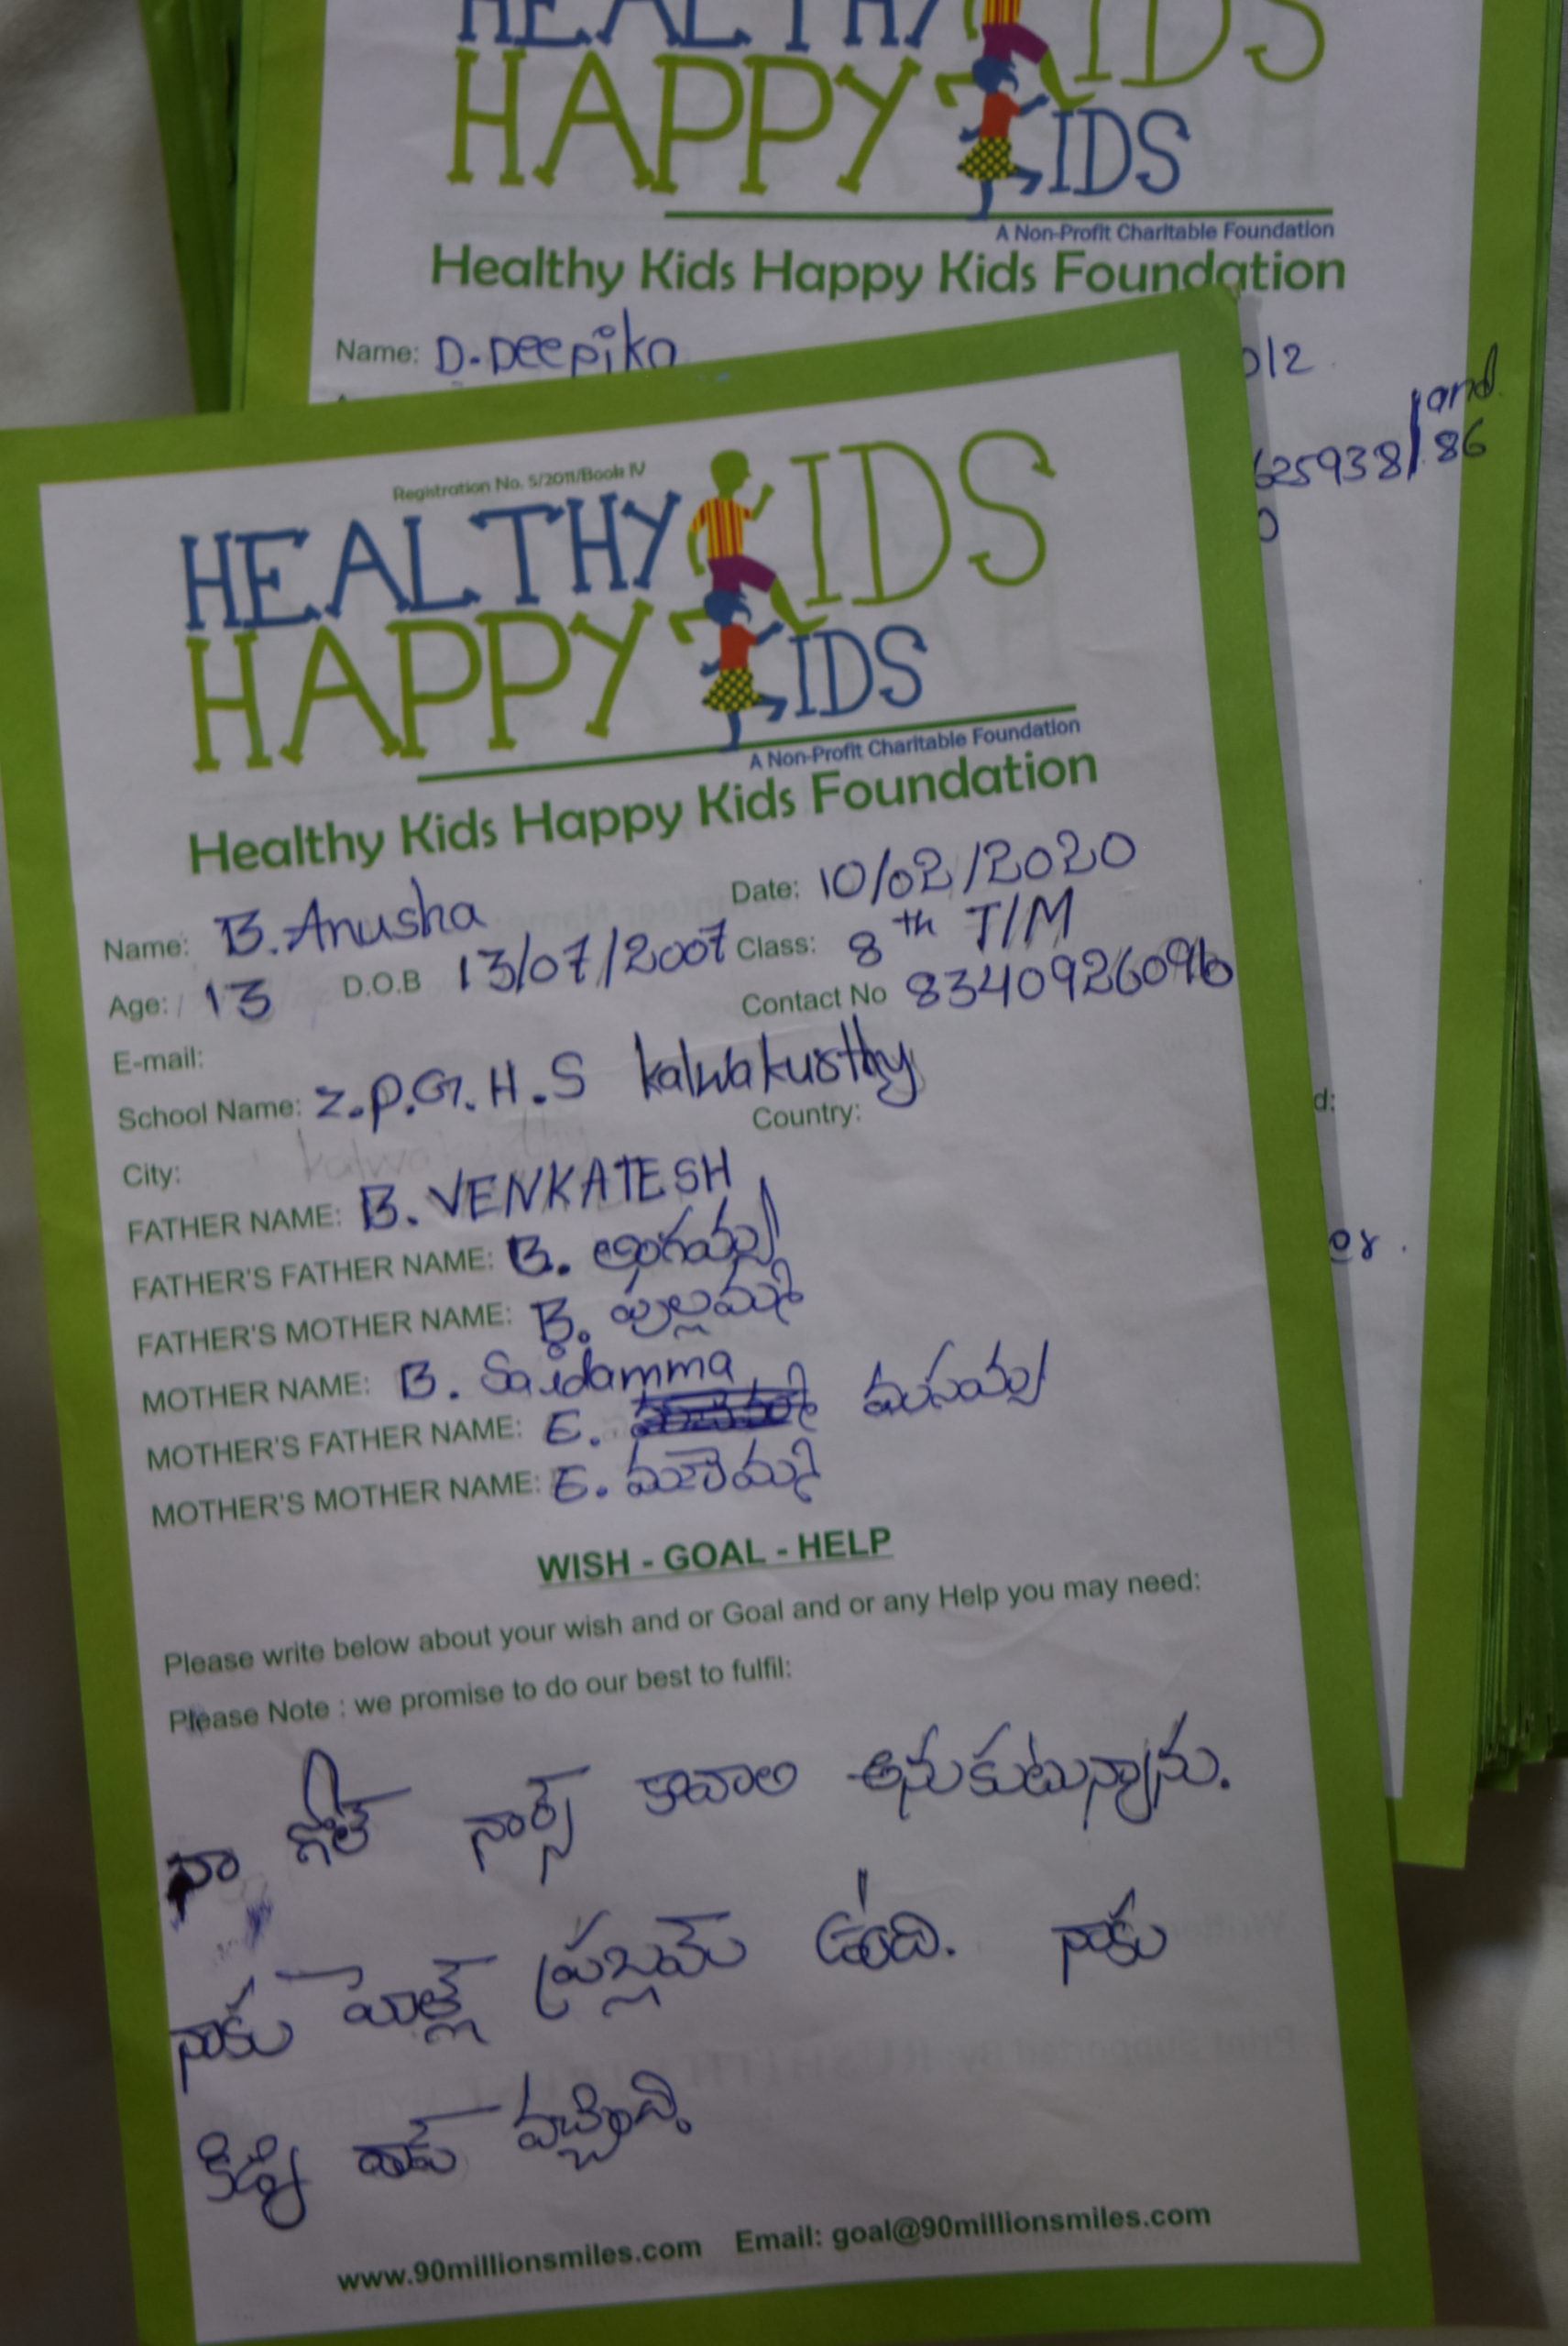 HEALTHY KIDS
HAPPY KIDS
A Non-Profit Charitable Foundation
Healthy Kids Happy Kids Foundation
Name: D. Deepika
625938/86
and
Registration No. 5/2011/Book IV
HEALTHY KIDS
HAPPY KIDS
A Non-Profit Charitable Foundation
Healthy Kids Happy Kids Foundation
Name: B. Anusha Date: 10/02/2020
Age: 13 D.O.B 13/07/2007 Class: 8th T/M
Contact No 8340926096
E-mail:
School Name: Z.P.G.H.S kalwakurthy
City: Country:
FATHER NAME: B. VENKATESH
FATHER'S FATHER NAME: B.
FATHER'S MOTHER NAME: B. పుల్లమ్మ
MOTHER NAME: B. Saidamma
MOTHER'S FATHER NAME: E.
MOTHER'S MOTHER NAME: E.
WISH - GOAL - HELP
Please write below about your wish and or Goal and or any Help you may need:
Please Note : we promise to do our best to fulfil:
నా గోల్ నార్స్ కావాల అనుకుటున్నాను.
నాకు హెల్త్ ప్రబ్లమ్ ఉంది. నాకు
కిడ్నీ వచ్చింది
www.90millionsmiles.com Email: goal@90millionsmiles.com